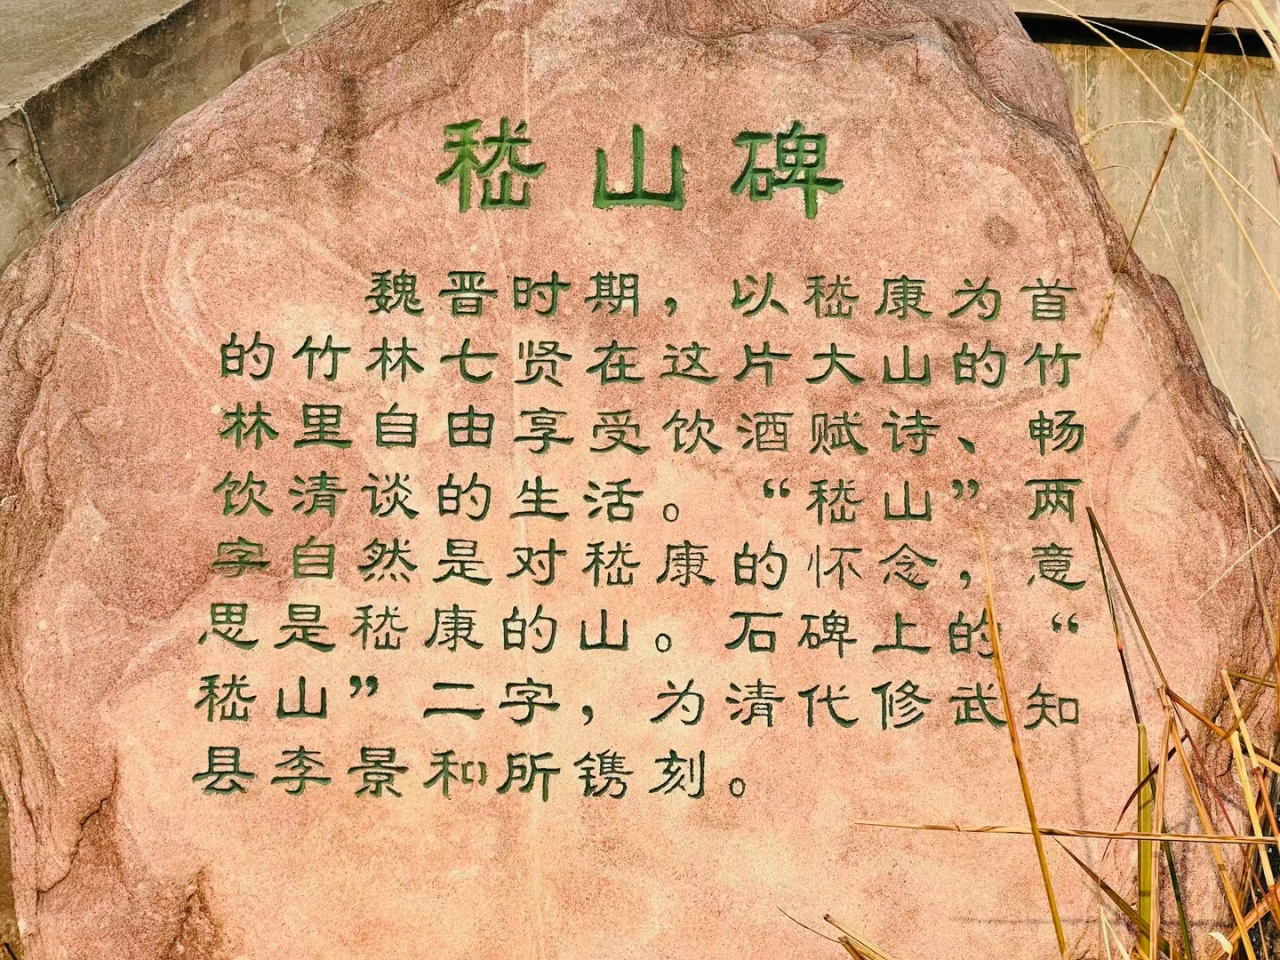 嵇山碑
魏晋时期，以嵇康为首
的竹林七贤在这片大山的竹
林里自由享受饮酒赋诗、畅
饮清谈的生活。“嵇山”两
字自然是对嵇康的怀念，意
思是嵇康的山。石碑上的“
嵇山”二字，为清代修武知
县李景和所镌刻。